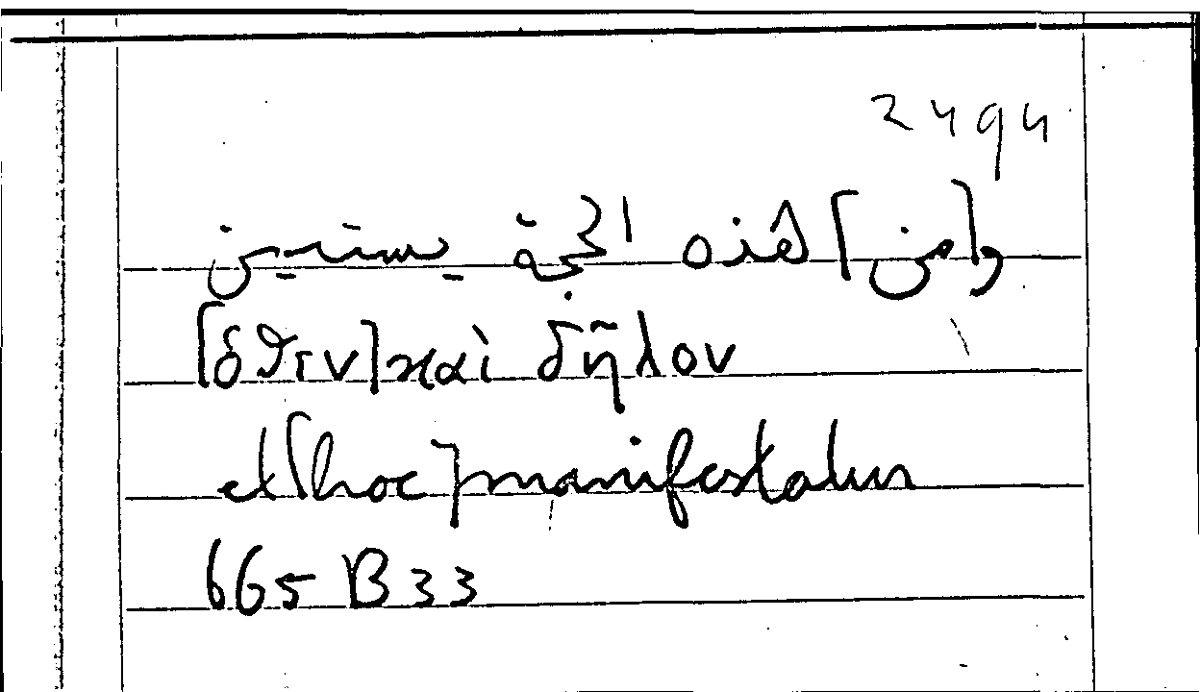 2494
و[من] هذه الحجة يستبين
[ὅθεν] καὶ δῆλον
et [hoc] manifestatur
665 B 33